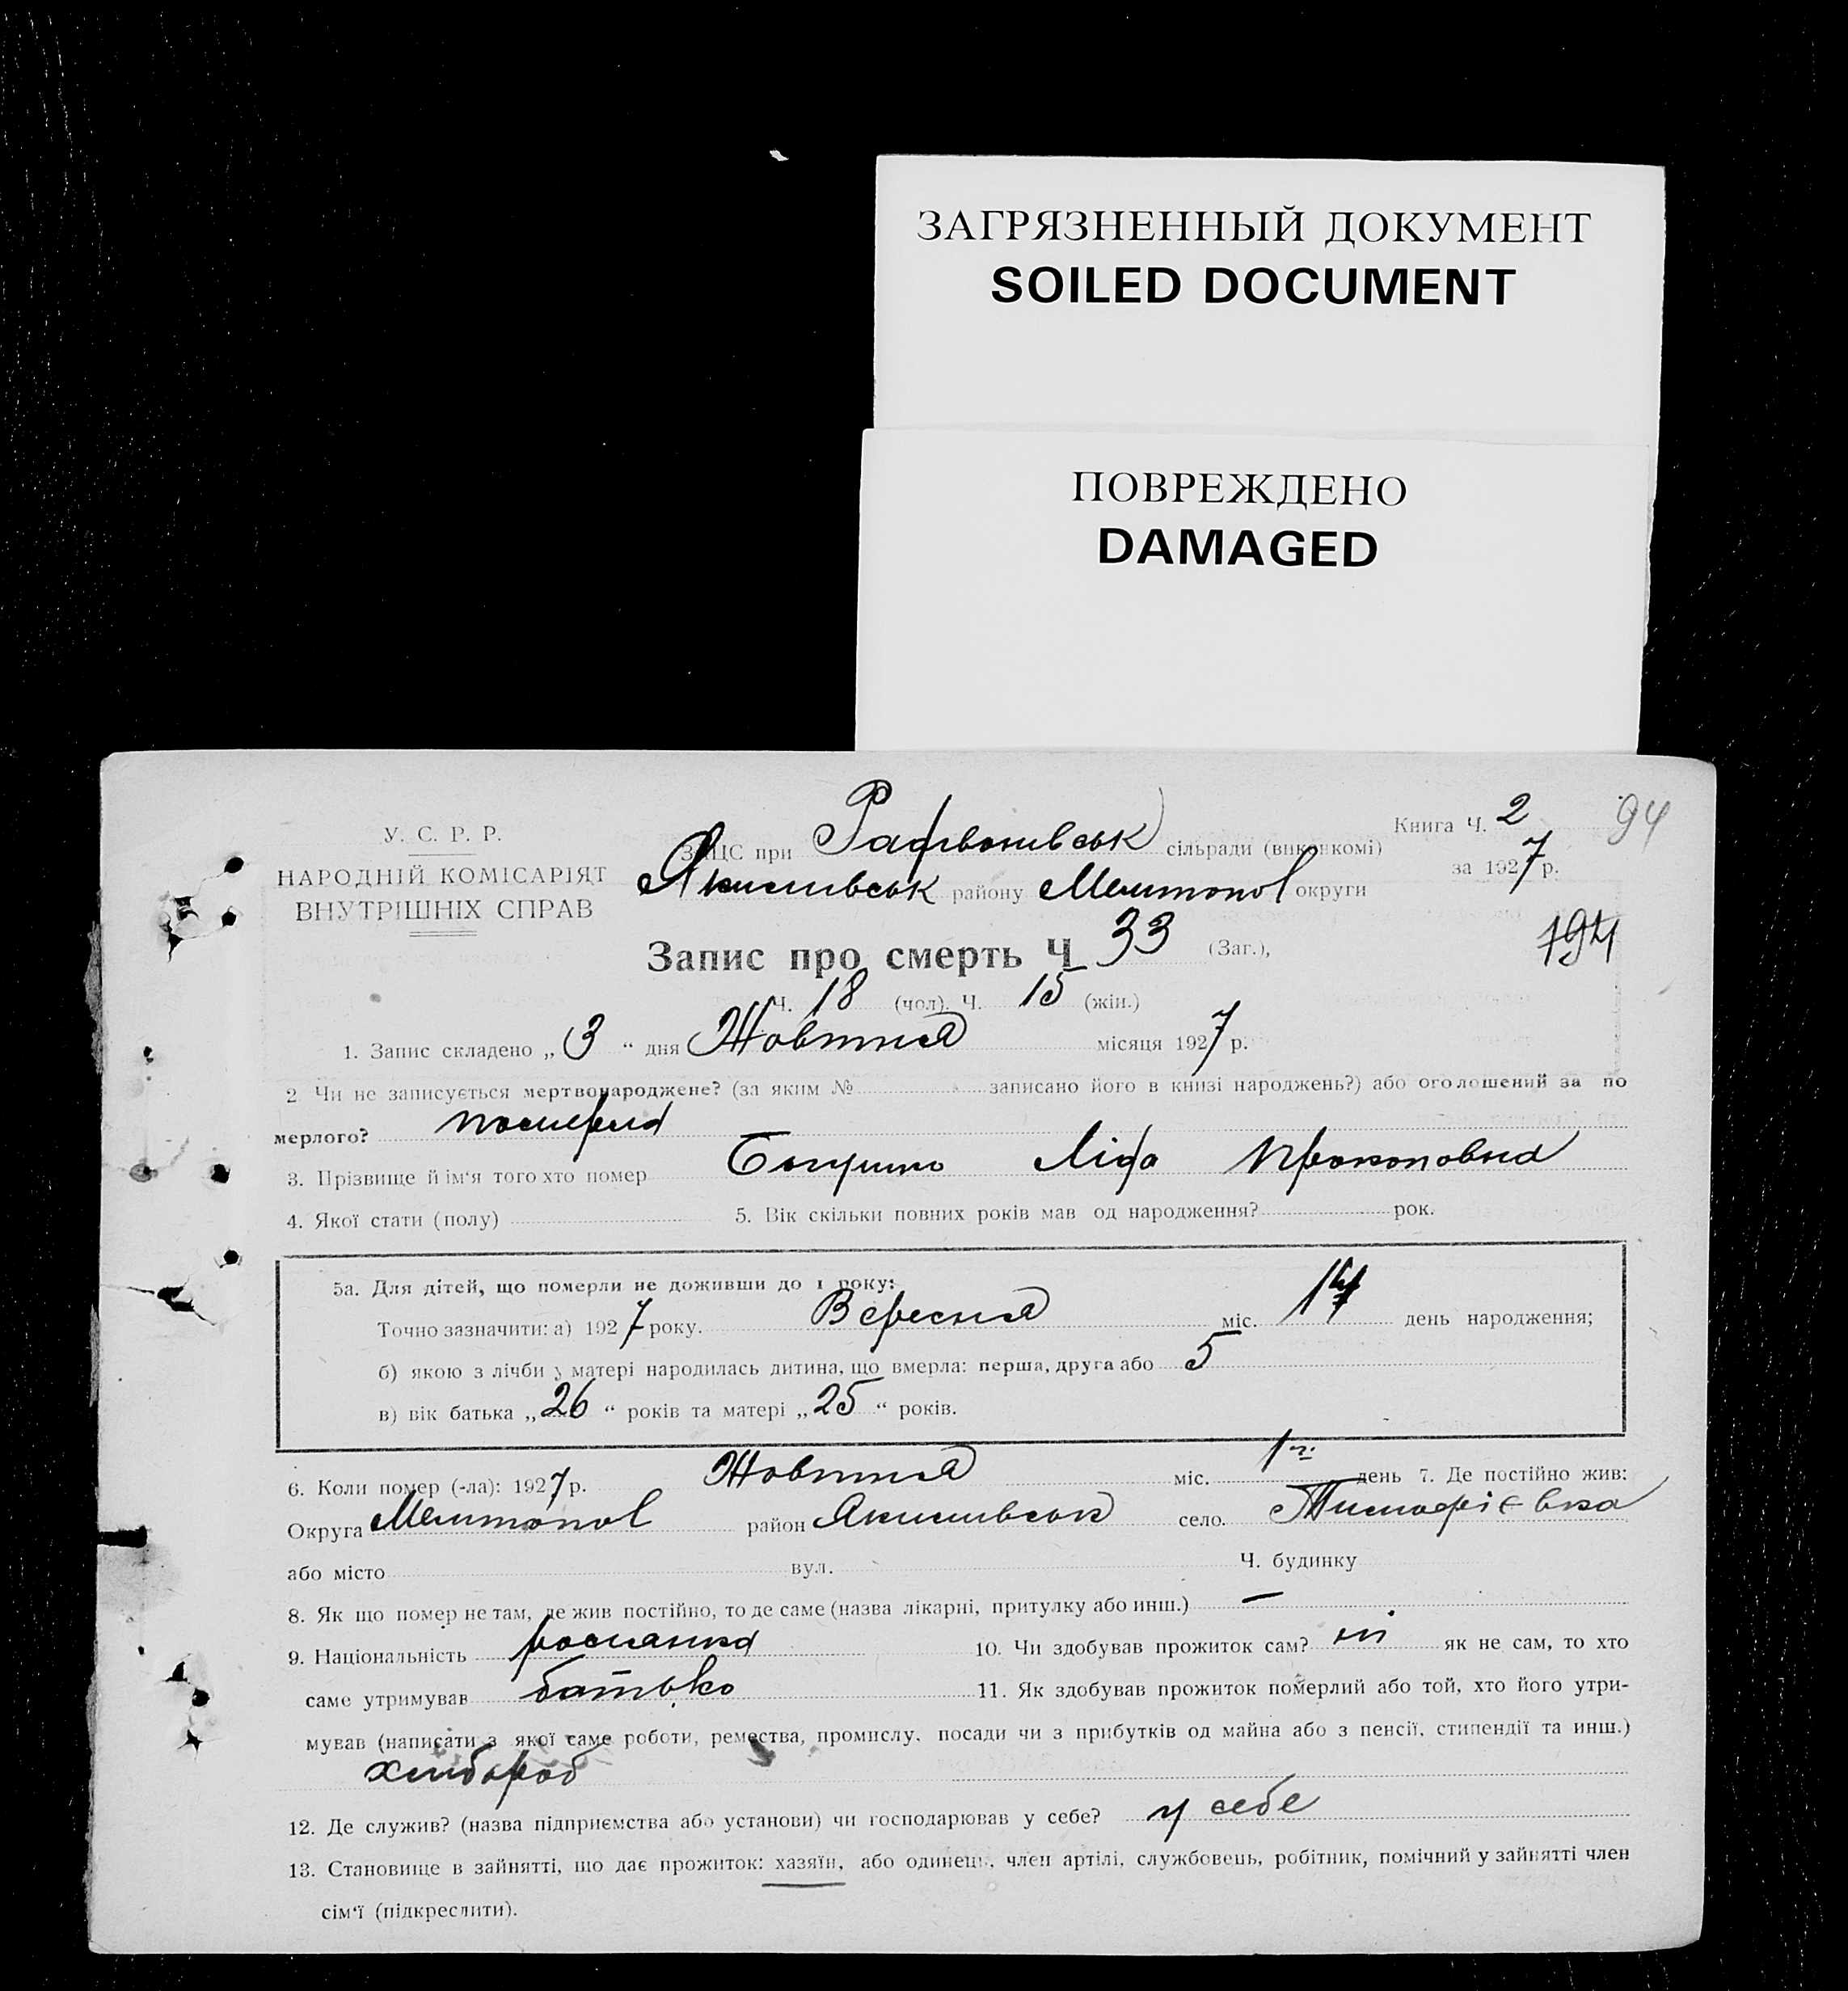 ЗАГРЯЗНЕННЫЙ ДОКУМЕНТ
SOILED DOCUMENT
ПОВРЕЖДЕНО
DAMAGED
У. С. Р. Р.
НАРОДНІЙ КОМІСАРІЯТ
ВНУТРІШНІХ СПРАВ
ЗАЦС при сільради (виконкомі)
Книга Ч. 2 94
Якимівськ району Мелитопол округи
за 1927 р.
Запис про смерть Ч 33 (Заг.),
194
Ч. 18 (чол). Ч. 15 (жін.)
1. Запис складено „3“ дня Жовтня місяця 1927 р.
2 Чи не записується мертвонароджене? (за яким № записано його в книзі народжень?) або оголошений за по
мерлого? померла
3. Прізвище й ім'я того хто помер Ліда Прокоповна
4. Якої стати (полу) 5. Вік скільки повних років мав од народження? рок.
5а. Для дітей, що померли не доживши до 1 року:
Точно зазначити: а) 1927 року. Вересня міс. день народження;
б) якою з лічби у матері народилась дитина, що вмерла: перша, друга або 5
в) вік батька „26“ років та матері „25“ років.
6. Коли помер (-ла): 1927 р. Жовтня міс. 1го день 7. Де постійно жив:
Округа Мелитопол район Якимивськ село.
або місто вул. Ч. будинку
8. Як що помер не там, де жив постійно, то де саме (назва лікарні, притулку або инш.) —
9. Національність росіанка 10. Чи здобував прожиток сам? ні як не сам, то хто
саме утримував батько 11. Як здобував прожиток померлий або той, хто його утри-
мував (написати з якої саме роботи, ремества, промислу, посади чи з прибутків од майна або з пенсії, стипендії та инш.)
хлибороб
12. Де служив? (назва підприємства або установи) чи господарював у себе? у себе
13. Становище в зайнятті, що дає прожиток: хазяїн, або одинець, член артілі, службовець, робітник, помічний у зайнятті член
сім'ї (підкреслити).